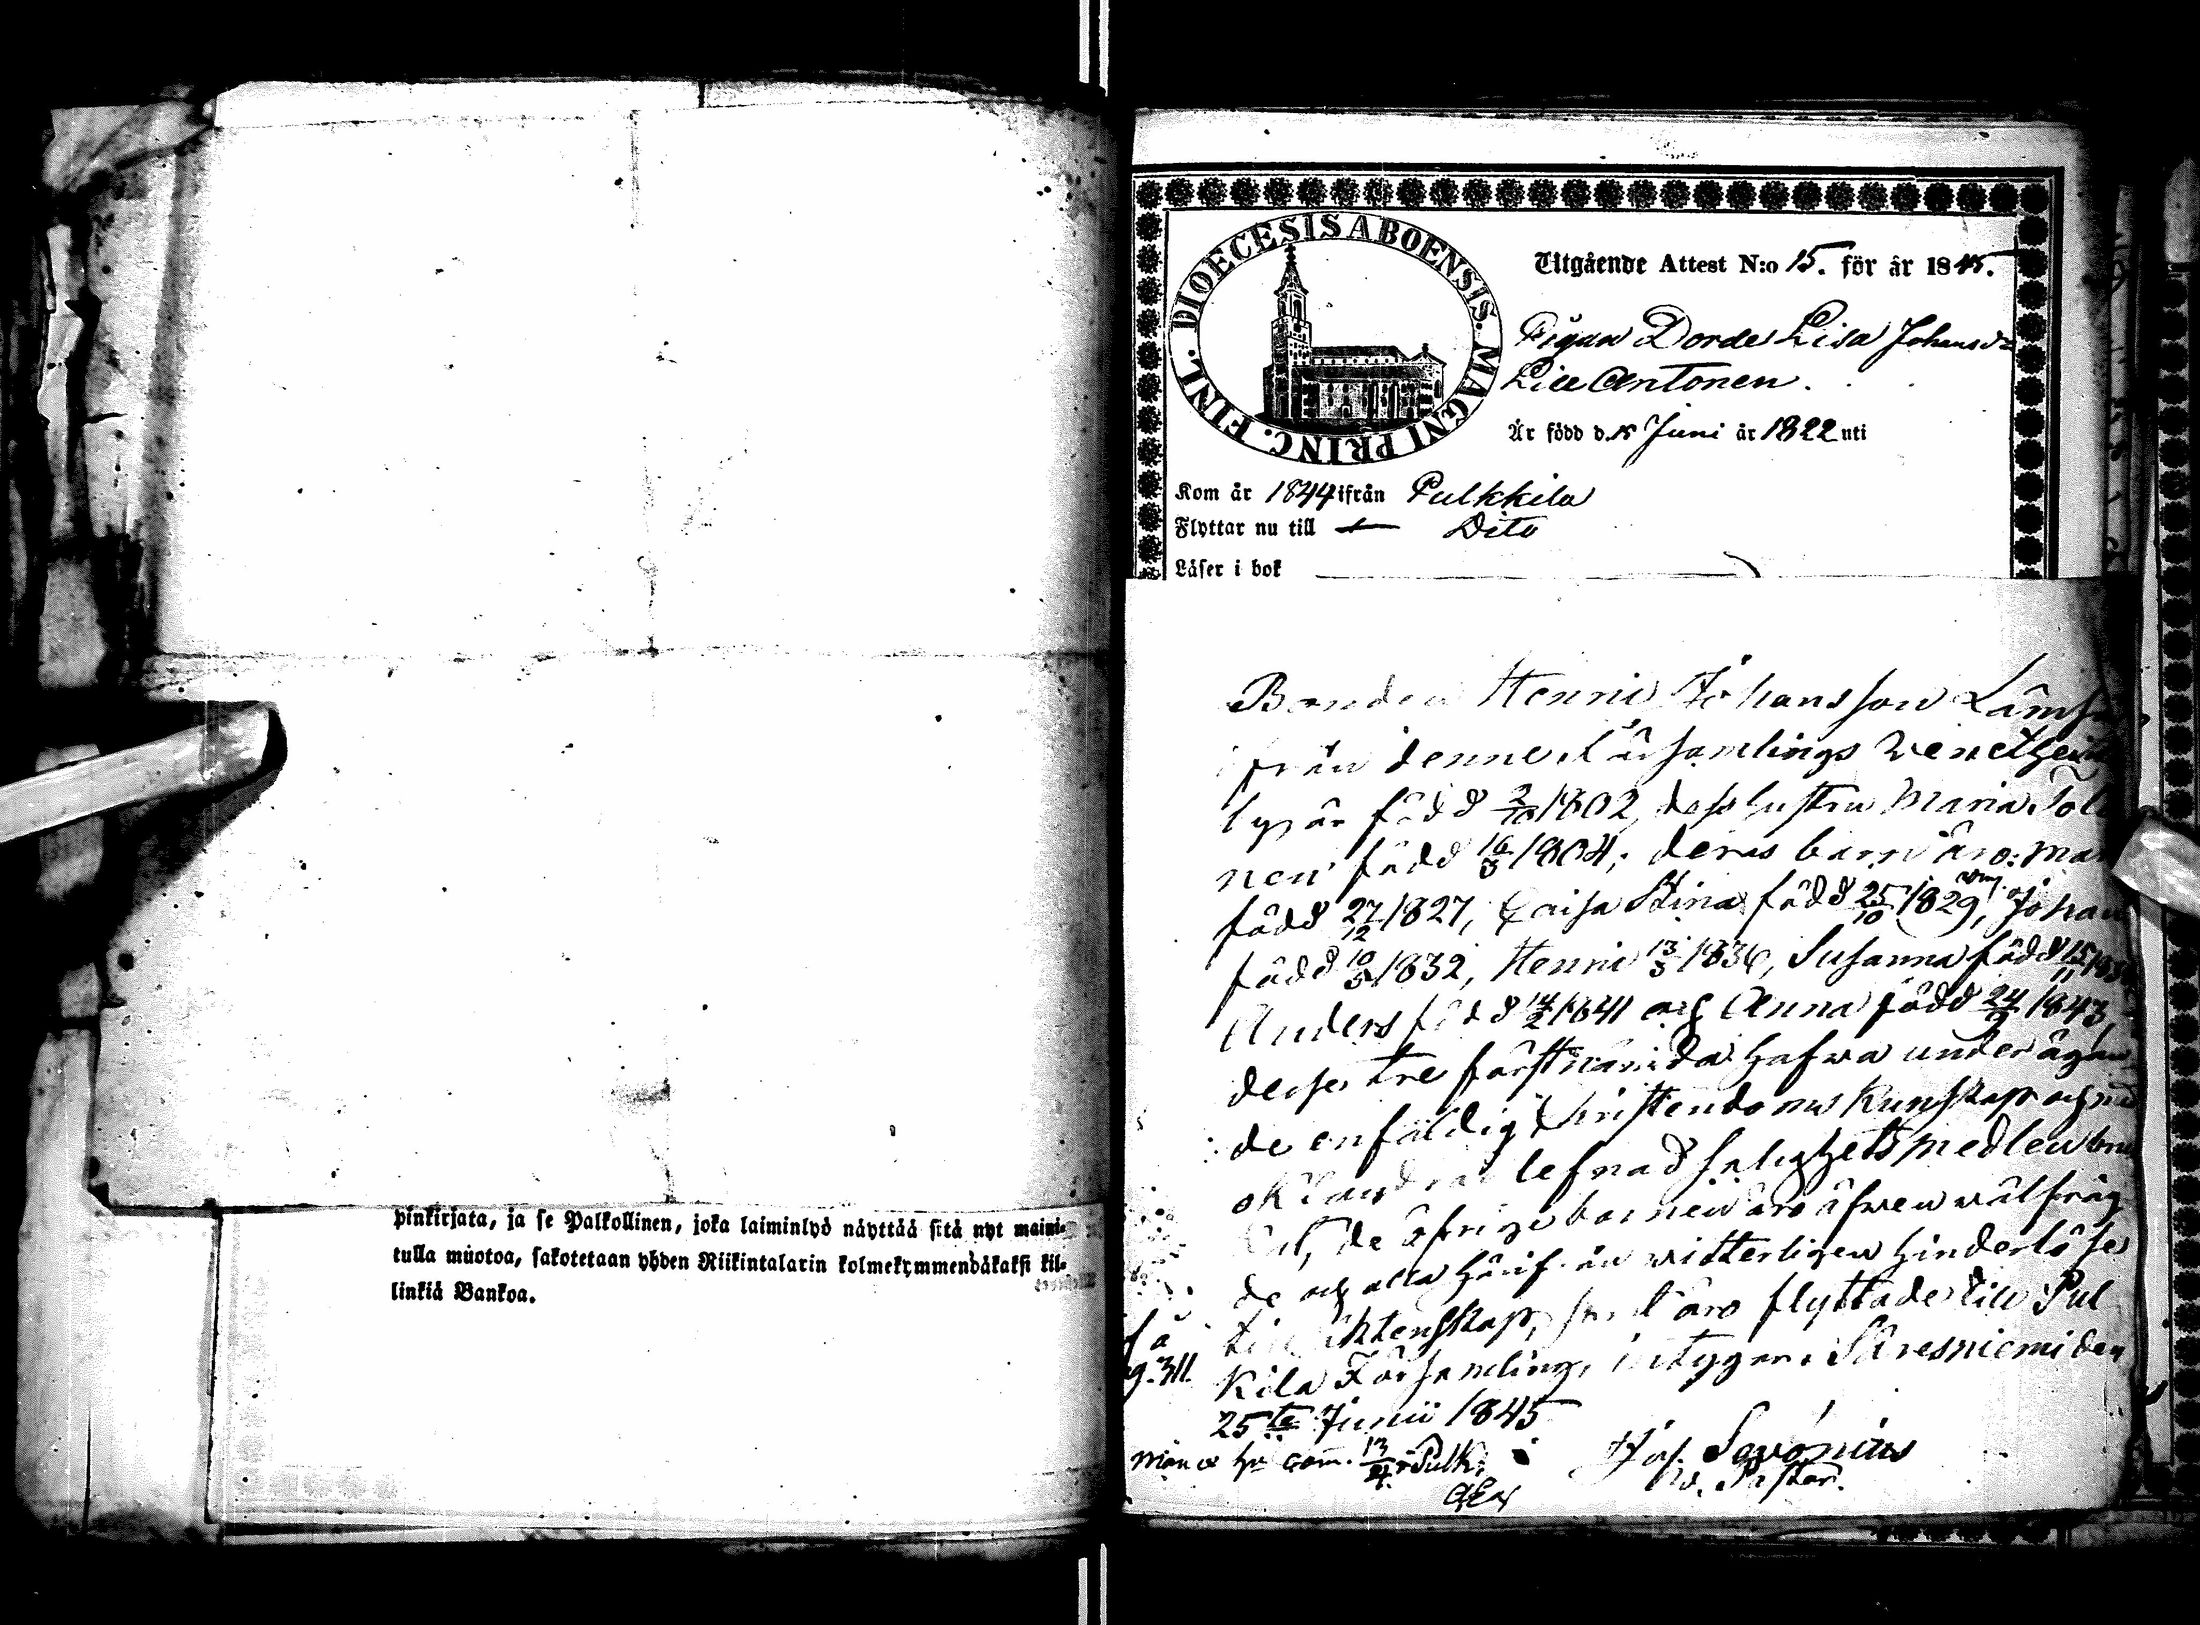 pinkirjata, ja se Palkollinen, joka laiminlyö näyttää sitä nyt maini-
tulla muotoa, sakotetaan yhden Riikintalarin kolmekymmendäkaksi kil-
linkiä Bankoa.
DIOECESIS ABOENSIS. MAGNI PRINC. FINL.
Utgående Attest N:o 15. för år 1845.
Pigan Lisa Johansdr
Lill Antonen.
Är född d. 15 Juni år 1822 uti
Kom år 1844 ifrån Pulkkila
Flyttar nu till Dito
Läser i bok
Bonden Henric Johansson
ifrån denne Församlings
by, är född 2/10 1802, dess hustru Maria
nen född 16/3 1804; deras barn äro: Mar
född 27/12 1827, Caisa Stina född 25/10 1829, Johan
född 10/5 1832, Henric 13/3 1836, Susanna född 15/11
Anders född 14/2 1841 och Anna född 24/ 1843,
desse tre förstnämda hafwa
de enfäldig Christendoms kunskap och med
oklandrad lefnad salighets medlen
de öfrige barnen äro äfwen wälfräg
de och alla härifrån witterligen hinderlöse
till äktenskap, äro flyttade till Pul
kila Församling, intygar. Säresniemi den
25te Junii 1845
g. 311.
Jos. Savonius
V. Pastor.
13/4 i Pulk.